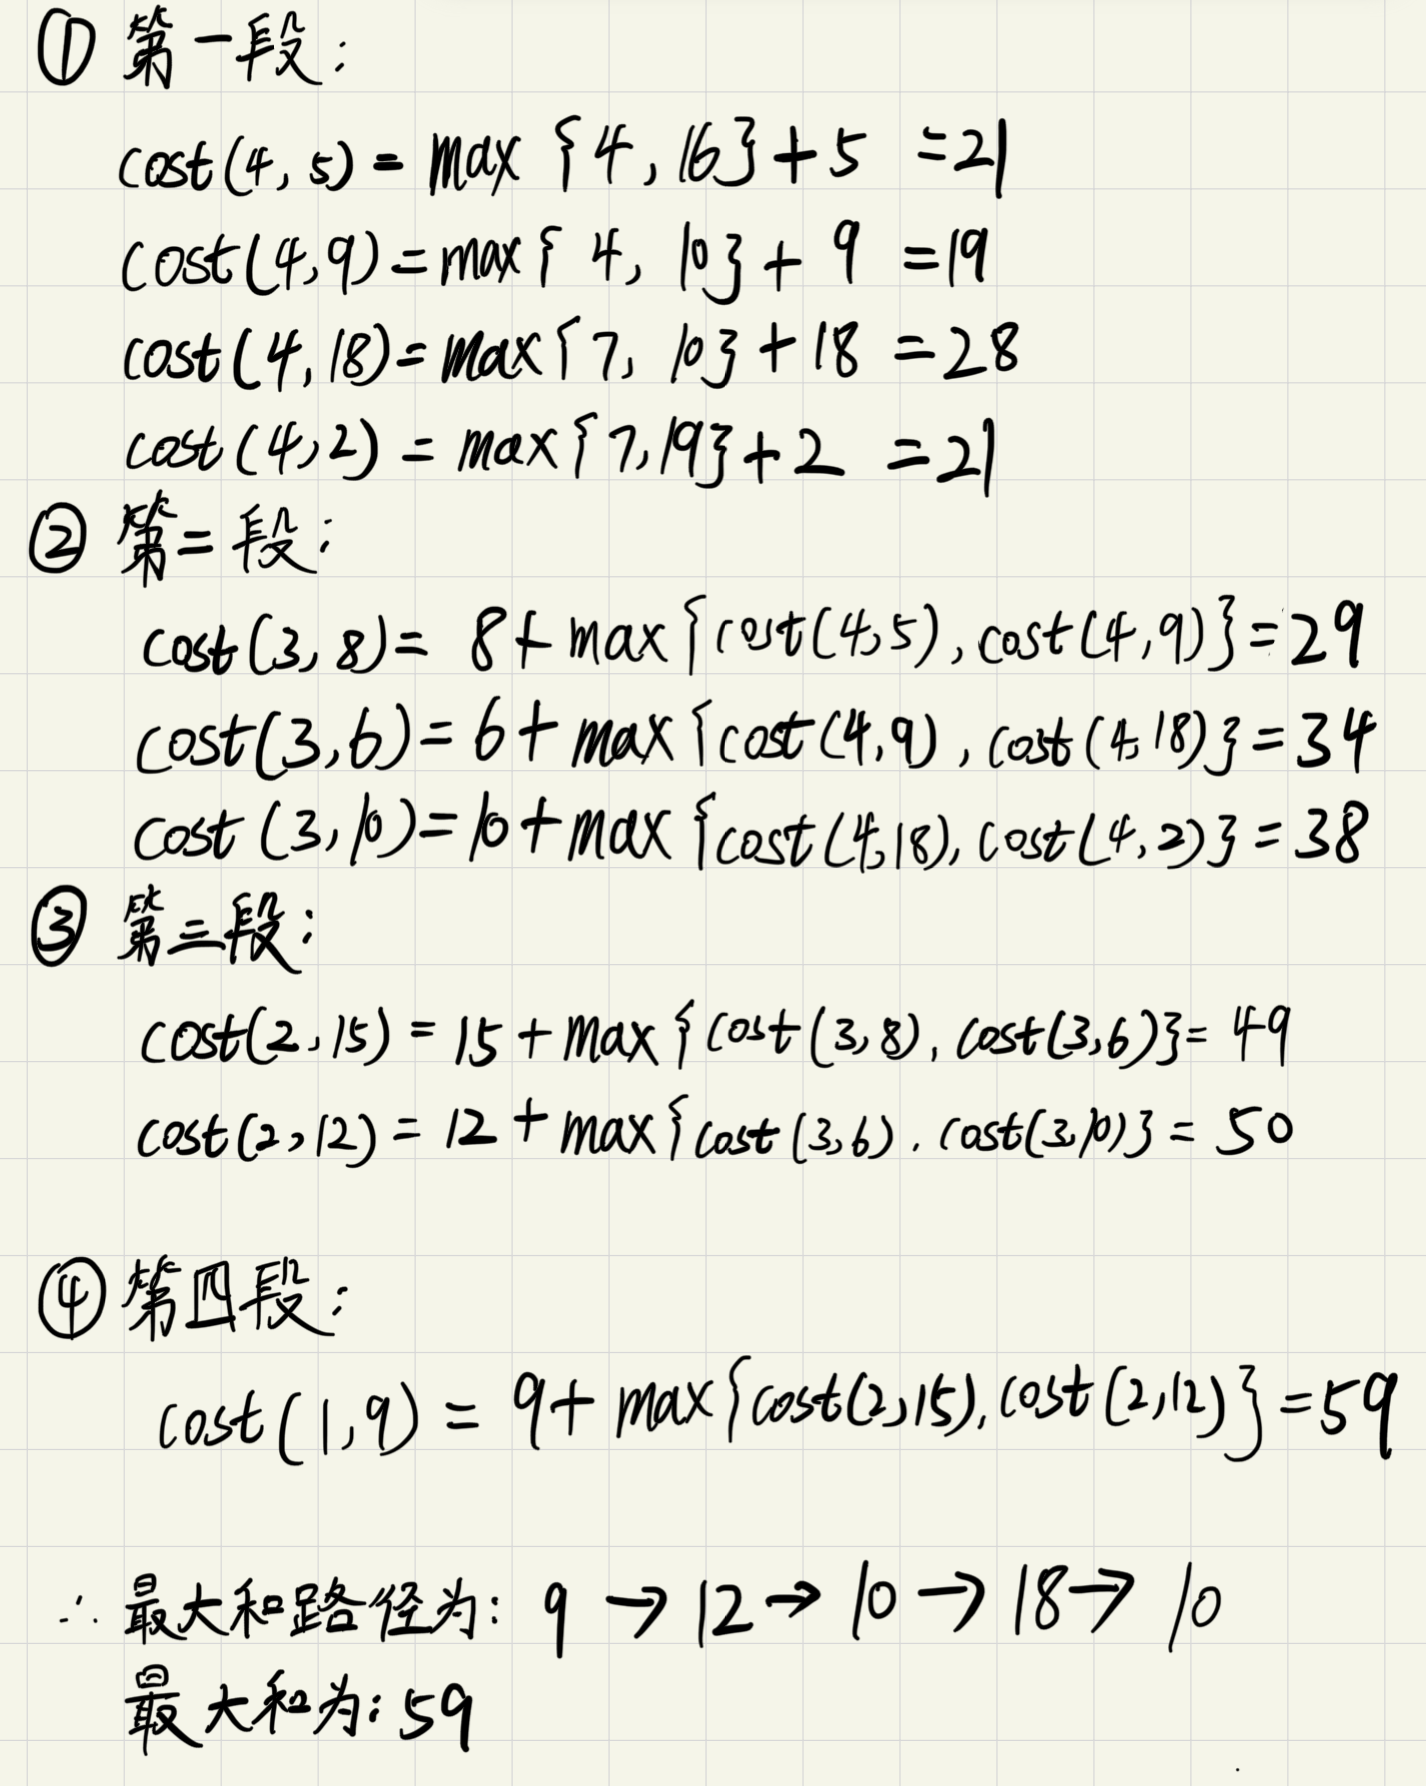 ① 第一段:
cost(4, 5) = max {4, 16} + 5 = 21
cost(4,9) = max{ 4, 10} + 9 = 19
cost(4,18) = max{7, 10} + 18 = 28
cost(4,2) = max{7,19} + 2 = 21
② 第二段:
cost(3, 8) = 8 + max {cost(4,5), cost(4,9)} = 29
cost(3,6) = 6 + max {cost(4,9), cost(4,18)} = 34
cost(3,10) = 10 + max {cost(4,18), cost(4,2)} = 38
③ 第三段:
cost(2,15) = 15 + max {cost(3,8), cost(3,6)} = 49
cost(2,12) = 12 + max{cost(3,6), cost(3,10)} = 50
④ 第四段:
cost(1,9) = 9 + max{cost(2,15), cost(2,12)} = 59
∴ 最大和路径为: 9 → 12 → 10 → 18 → 10
最大和为: 59